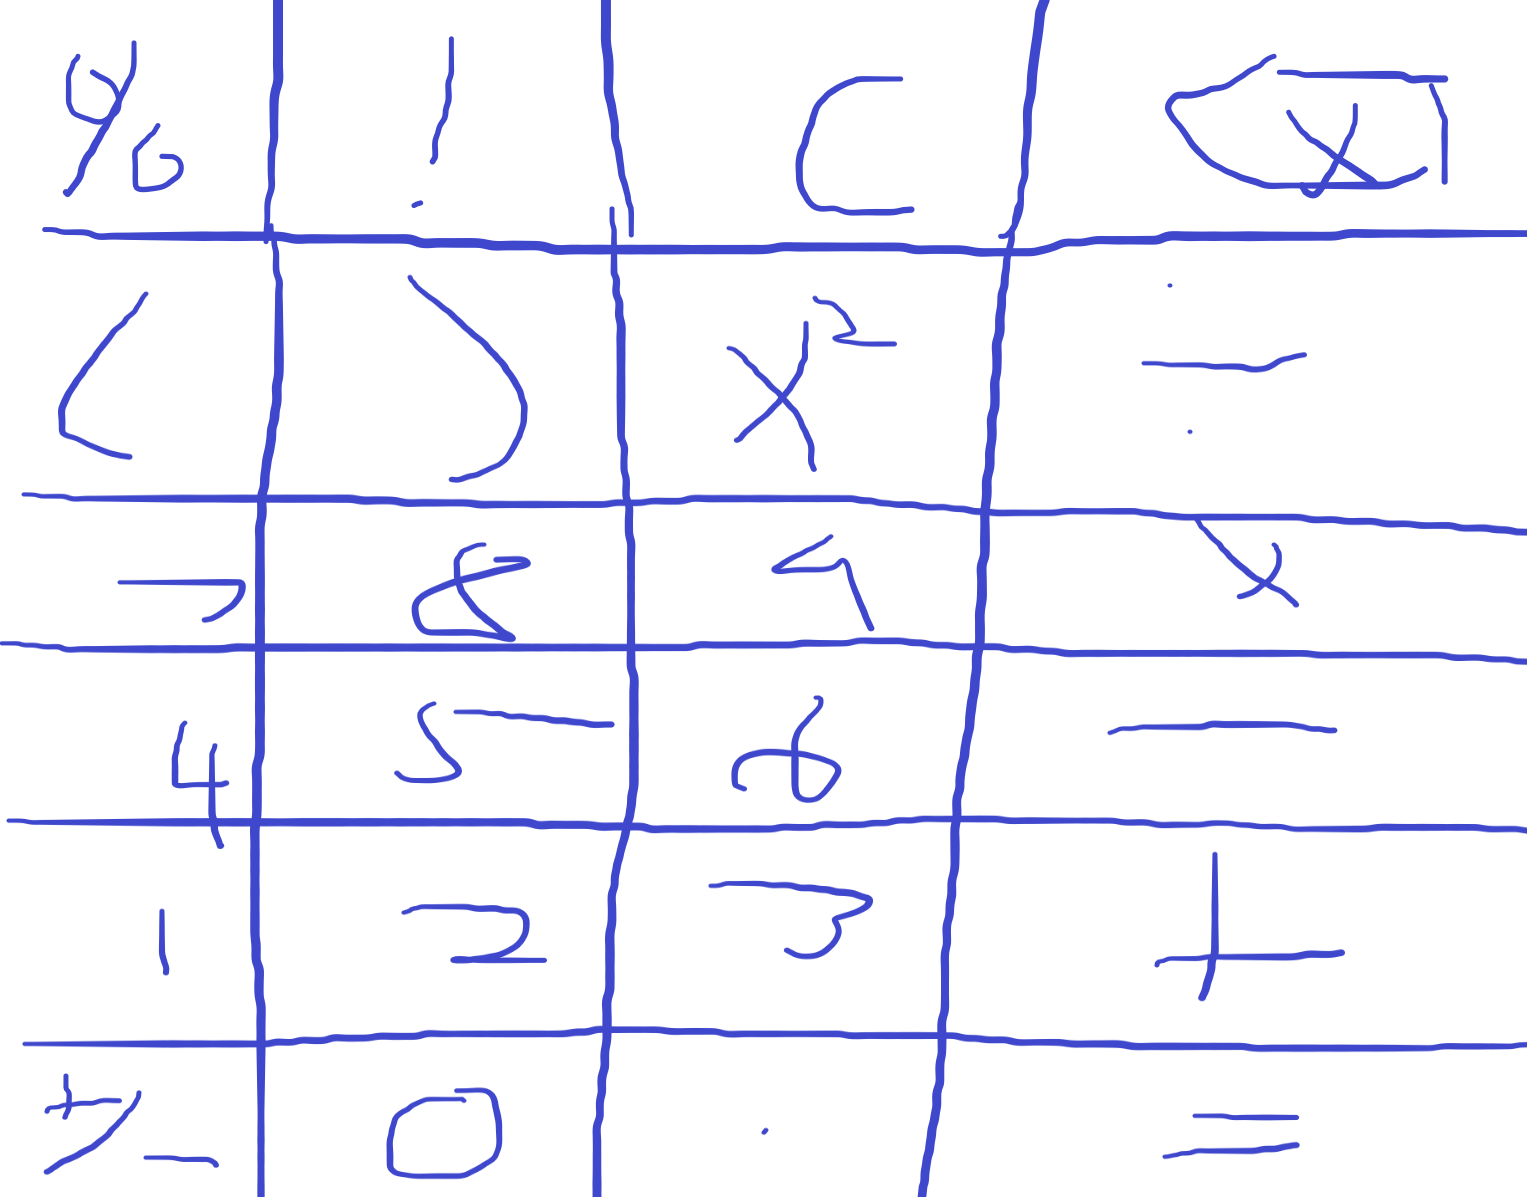 % ! C ⌫
( ) x² ÷
7 8 9 ×
4 5 6 −
1 2 3 +
+/− 0 . =